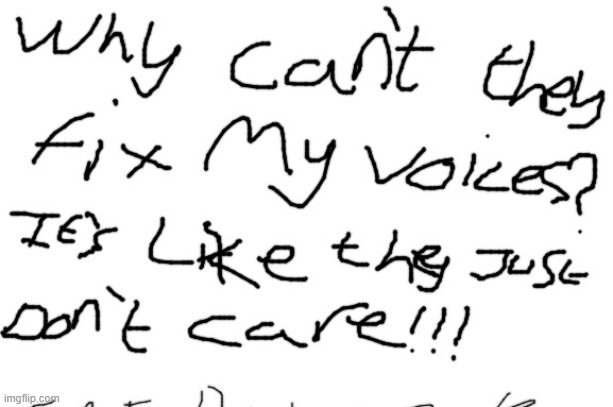 Why can't they
fix My voices?
It's Like they Just
Don't care!!!
imgflip.com